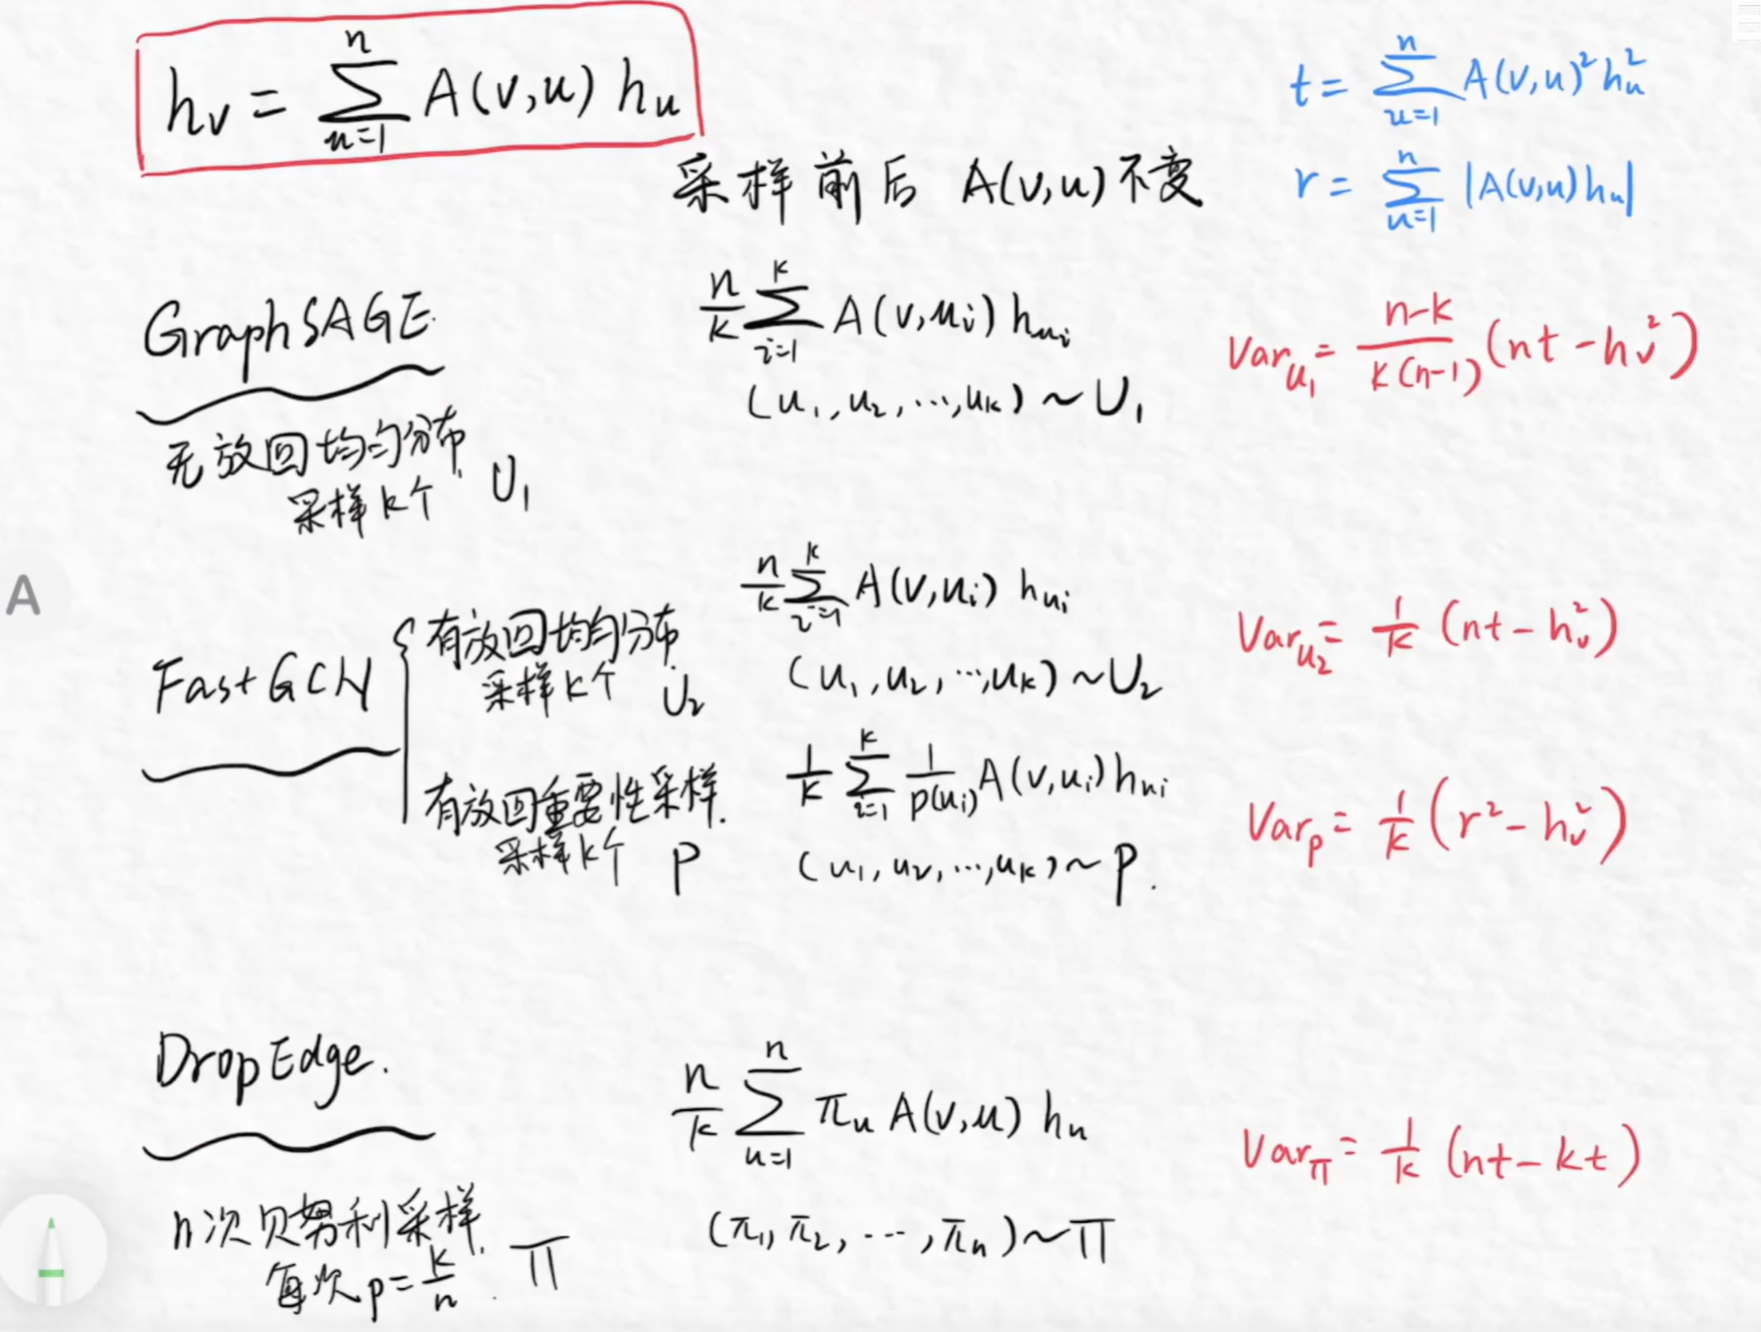 h_v = \sum_{u=1}^{n} A(v,u) h_u
t = \sum_{u=1}^{n} A(v,u)^2 h_u^2
采样前后 A(v,u)不变
r = \sum_{u=1}^{n} |A(v,u) h_u|
GraphSAGE.
无放回均匀分布
采样k个 U_1
\frac{n}{k} \sum_{i=1}^{k} A(v,u_i) h_{u_i}
(u_1, u_2, ..., u_k) ~ U_1
Var_{u_1} = \frac{n-k}{k(n-1)} (nt - h_v^2)
A
FastGCN
有放回均匀分布
采样k个 U_2
\frac{n}{k} \sum_{i=1}^{k} A(v,u_i) h_{u_i}
(u_1, u_2, ..., u_k) ~ U_2
Var_{u_2} = \frac{1}{k} (nt - h_v^2)
有放回重要性采样.
采样k个 P
\frac{1}{k} \sum_{i=1}^{k} \frac{1}{p(u_i)} A(v,u_i) h_{u_i}
(u_1, u_2, ..., u_k) ~ P.
Var_p = \frac{1}{k} (r^2 - h_v^2)
DropEdge.
n次贝努利采样.
每次 p = \frac{k}{n}. Π
\frac{n}{k} \sum_{u=1}^{n} π_u A(v,u) h_u
(π_1, π_2, ..., π_n) ~ Π
Var_π = \frac{1}{k} (nt - kt)